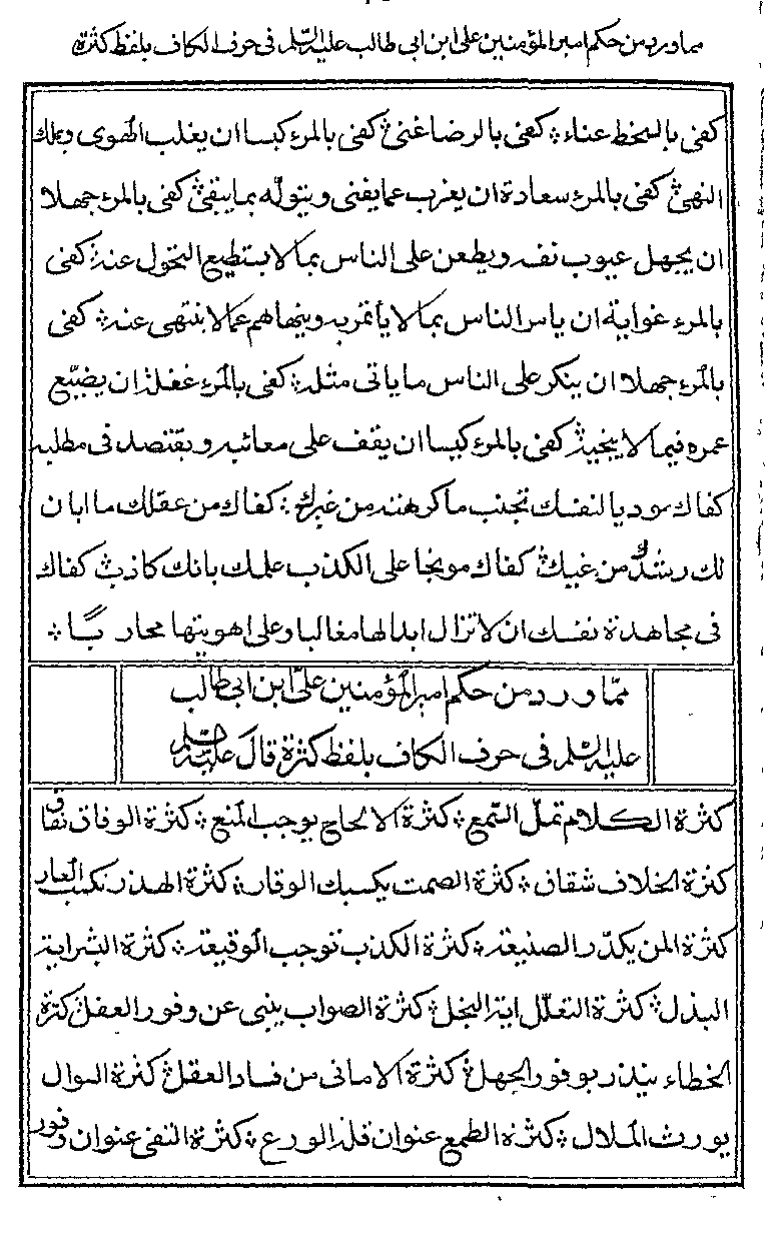 مما ورد من حكم امير المؤمنين على ابن ابى طالب عليه السّلم فى حرف الكاف بلفظ كثرة
كفى بالسخط عناء؛ كفى بالرضا غنىً؛ كفى بالمرء كيسا ان يغلب الهوى ويملك
النهىٰ؛ كفى بالمرء سعادة ان يعزب عما يفنى ويتولّه بما يبقىٰ؛ كفى بالمرء جهلا
ان يجهل عيوب نفسه ويطعن على الناس بما لا يستطيع التحول عنه؛ كفى
بالمرء غواية ان يامر الناس بما لا ياتمر به وينهاهم عما لا ينتهى عنه؛ كفى
بالمرء جهلا ان ينكر على الناس ما ياتى مثله؛ كفى بالمرء غفلة ان يضيّع
عمره فيما لا ينجيه؛ كفى بالمرء كيسا ان يقف على معائبه ويقتصد فى مطلبه
كفاك مودبا لنفسك تجنب ما كرهته من غيرك؛ كفاك من عقلك ما ابان
لك رشدك من غيك؛ كفاك موبخا على الكذب علمك بانك كاذب؛ كفاك
فى مجاهدة نفسك ان لا تزال ابدا لها مغالبا وعلى اهويتها محاربًا؛
ممّا ورد من حكم امير المؤمنين علىّ ابن ابى طالب
عليه السّلم فى حرف الكاف بلفظ كثرة قال عليه السّلم
كثرة الكلام تملّ السّمع؛ كثرة الالحاح يوجب المنع؛ كثرة الوفاق نفاق
كثرة الخلاف شقاق؛ كثرة الصمت يكسبك الوقار؛ كثرة الهذر تكسب العار
كثرة المن يكدّر الصنيعة؛ كثرة الكذب توجب الوقيعة؛ كثرة البشر اية
البذل؛ كثرة التعلّل اية البخل؛ كثرة الصواب ينبى عن وفور العقل؛ كثرة
الخطاء ينذر بوفور الجهل؛ كثرة الامانى من فساد العقل؛ كثرة السوال
يورث الملال؛ كثرة الطمع عنوان قلة الورع؛ كثرة التقى عنوان وفور